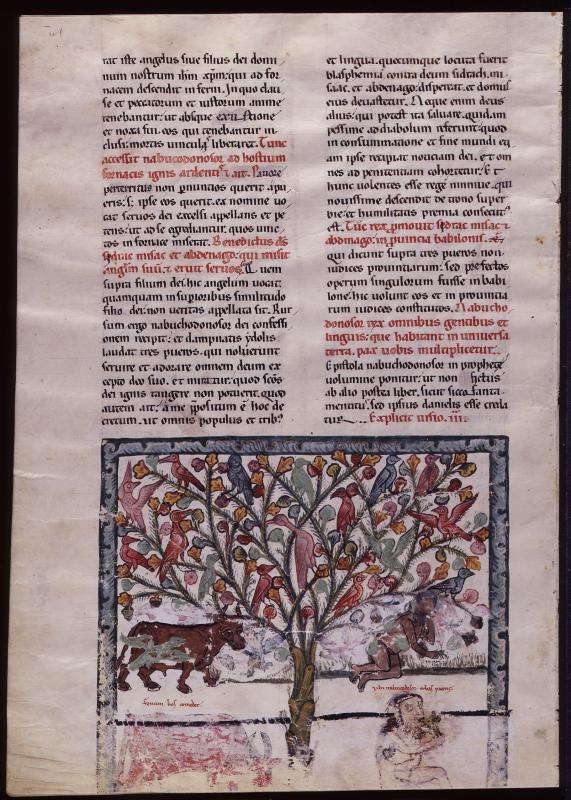 rat iste angelus siue filius dei domi
num nostrum ihm xpm: qui ad for
nacem descendit inferni. In quo clau
se et peccatorum et iustorum anime
tenebantur: ut absque exustione
et noxa sui. eos qui tenebantur in
clusi mortis vinculis liberaret. Tunc
accessit nabucodonosor ad hostium
fornacis ignis ardentis et ait.
perterritus non p nuntios querit
eris: sed ipse eos querit. ex nomine vo
cat seruos dei excelsi appellans et pe
tens: ut ad se egrediantur. quos vinc
tos in fornace miserat. Benedictus ds
sydrac misac et abdenago: qui misit
anglm suu: et eruit seruos. Quem
supra filium dei: hic angelum vocat
quamquam in superioribus similitudo
filio dei: non veritas appellata sit. Rur
sum ergo nabuchodonosor dei confessi
onem recipit: et dampnatis ydolis
laudat tres pueros. qui noluerunt
seruire et adorare omnem deum ex
cepto deo suo. et miratur: quod scos
dei ignis tangere non potuerit. quod
autem ait: a me ppositum e hoc de
cretum. ut omnis populus et trib:
et lingua. quecumque locuta fuerit
blasphemia. contra deum sidrach. mi
saac. et abdenago: dispereat. et domus
eius deuastetur. Neque enim deus
alius: qui potest ita saluare. quidam
pessime ad diabolum referunt: quod
in consummatione et fine mundi eti
am ipse recipiat noticiam dei. et om
nes ad penitentiam cohortetur. Et
hunc volentes esse rege niniue. qui
nouissime descendit de trono super
bie: et humilitatis premia consecut'
est. Tuc rex pmouit sydrac misac et
abdinago: in puincia babilonis.
qui dicunt supra tres pueros non
iudices prouinciarum: sed prefectos
operum singulorum fuisse in babi
lone: hic volunt eos et in prouincia
rum iudices constitutos. Nabucho
donosor rex omnibus gentibus et
linguis: que habitant in vniuersa
terra. pax vobis multiplicetur.
Epistola nabuchodonosor in prophete
volumine ponitur: ut non fictus
ab alio postea liber. sicut sicofanta
mentitur: sed ipsius danielis esse creda
tur. Explicit visio. iii.
fenum bos comedet